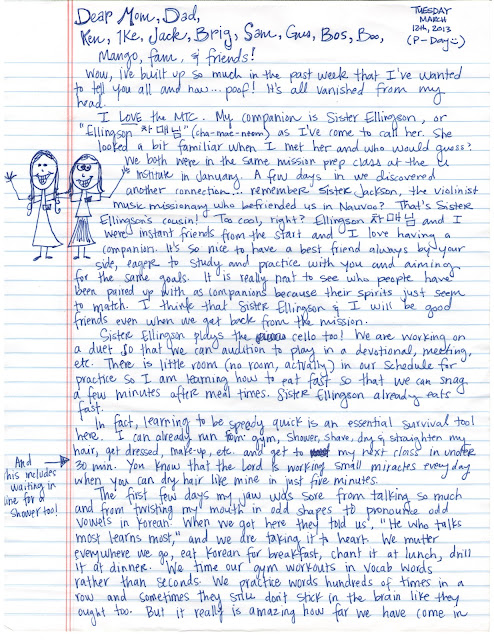 TUESDAY
MARCH
12th, 2013
(P-Day☺)
Dear Mom, Dad,
Ken, Ike, Jack, Brig, Sam, Gus, Bos, Boo,
Mango, fam, & friends!
Wow, i've built up so much in the past week that I've wanted
to tell you all and now... poof! It's all vanished from my
head.
I LOVE the MTC. My companion is Sister Ellingson, or
"Ellingson 자매님" (cha-mae-neem) as I've come to call her. She
looked a bit familiar when I met her and who would guess?
We both were in the same mission prep class at the
institute in January. A few days in we discovered
another connection... remember Sister Jackson, the violinist
music missionary who befriended us in Nauvoo? That's Sister
Ellingson's cousin! Too cool, right? Ellingson 자매님 and I
were instant friends from the start and I love having a
companion. It's so nice to have a best friend always by your
side, eager to study and practice with you and aiming
for the same goals. It is really neat to see who people have
been paired up with as companions because their spirits just seem
to match. I think that Sister Ellingson & I will be good
friends even when we get back from the mission.
Sister Ellingson plays the cello too! We are working on
a duet so that we can audition to play in a devotional, meeting,
etc. There is little room (no room, actually) in our schedule for
practice so I am learning how to eat fast so that we can snag
a few minutes after meal times. Sister Ellingson already eats
fast.
In fact, learning to be speedy quick is an essential survival tool
here. I can already run from gym, shower, shave, dry & straighten my
hair, get dressed, make-up, etc. and get to my next class in under
30 min. You know that the Lord is working small miracles everyday
when you can dry hair like mine in just five minutes.
And
this includes
waiting in
line for a
shower too!
The first few days my jaw was sore from talking so much
and from twisting my mouth in odd shapes to pronounce odd
vowels in Korean. When we got here they told us, "He who talks
most learns most," and we are taking it to heart. We mutter
everywhere we go, eat Korean for breakfast, chant it at lunch, drill
it at dinner. We time our gym workouts in vocab words
rather than seconds. We practice words hundreds of times in a
row and sometimes they still don't stick in the brain like they
ought too. But it really is amazing how far we have come in